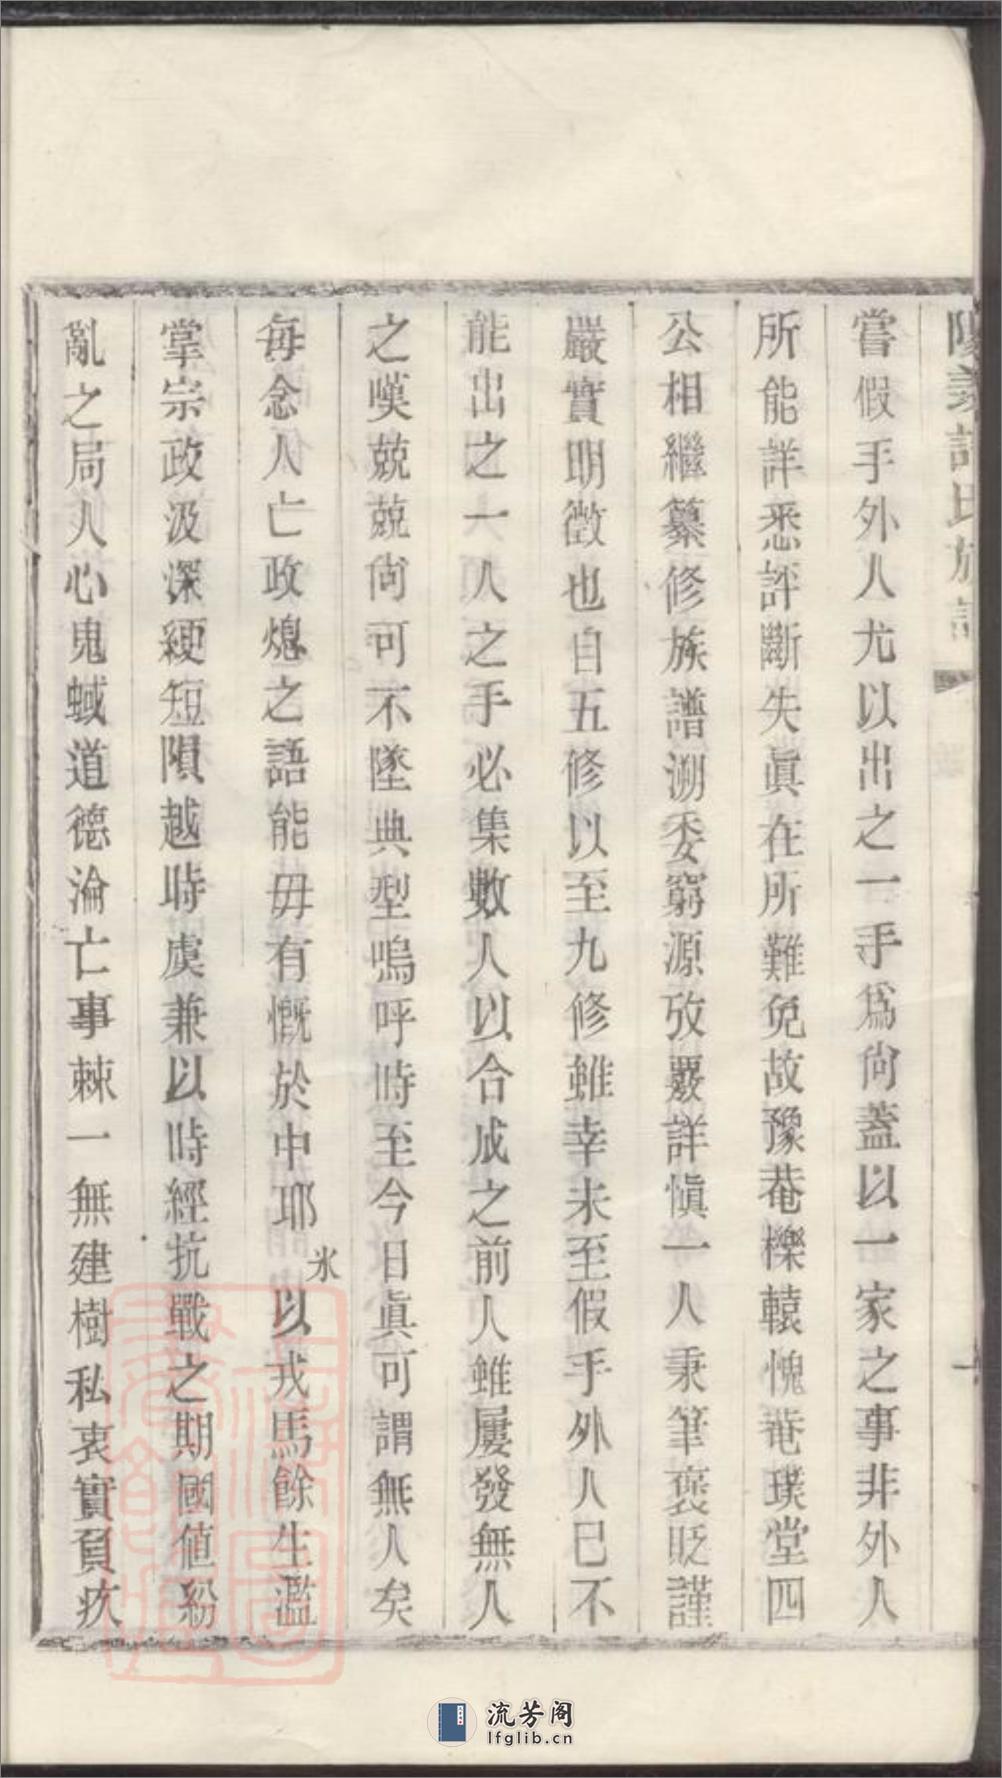 嘗假手外人尤以出之一手爲尙蓋以一家之事非外人
所能詳悉評斷失眞在所難免故豫菴櫟轅愧菴璞堂四
公相繼纂修族譜溯委窮源攷覈詳愼一人秉筆褒貶謹
嚴實明徵也自五修以至九修雖幸未至假手外人已不
能出之一人之手必集數人以合成之前人雖屢發無人
之嘆兢兢尙可不墜典型嗚呼時至今日眞可謂無人矣
每念人亡政熄之語能毋有慨於中耶氷以戎馬餘生濫
掌宗政汲深綆短隕越時虞兼以時經抗戰之期國值紛
亂之局人心鬼蜮道德淪亡事棘一無建樹私衷實負疚
流芳阁
lfglib.cn